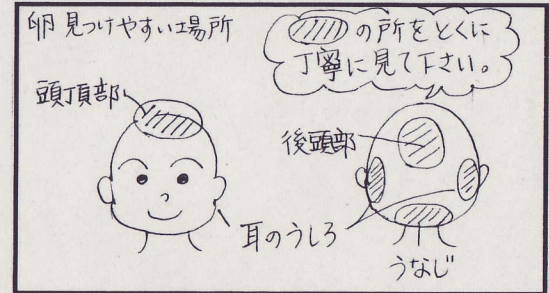 卵 見つけやすい場所
の所をとくに
丁寧に見て下さい。
頭頂部
後頭部
耳のうしろ
うなじ